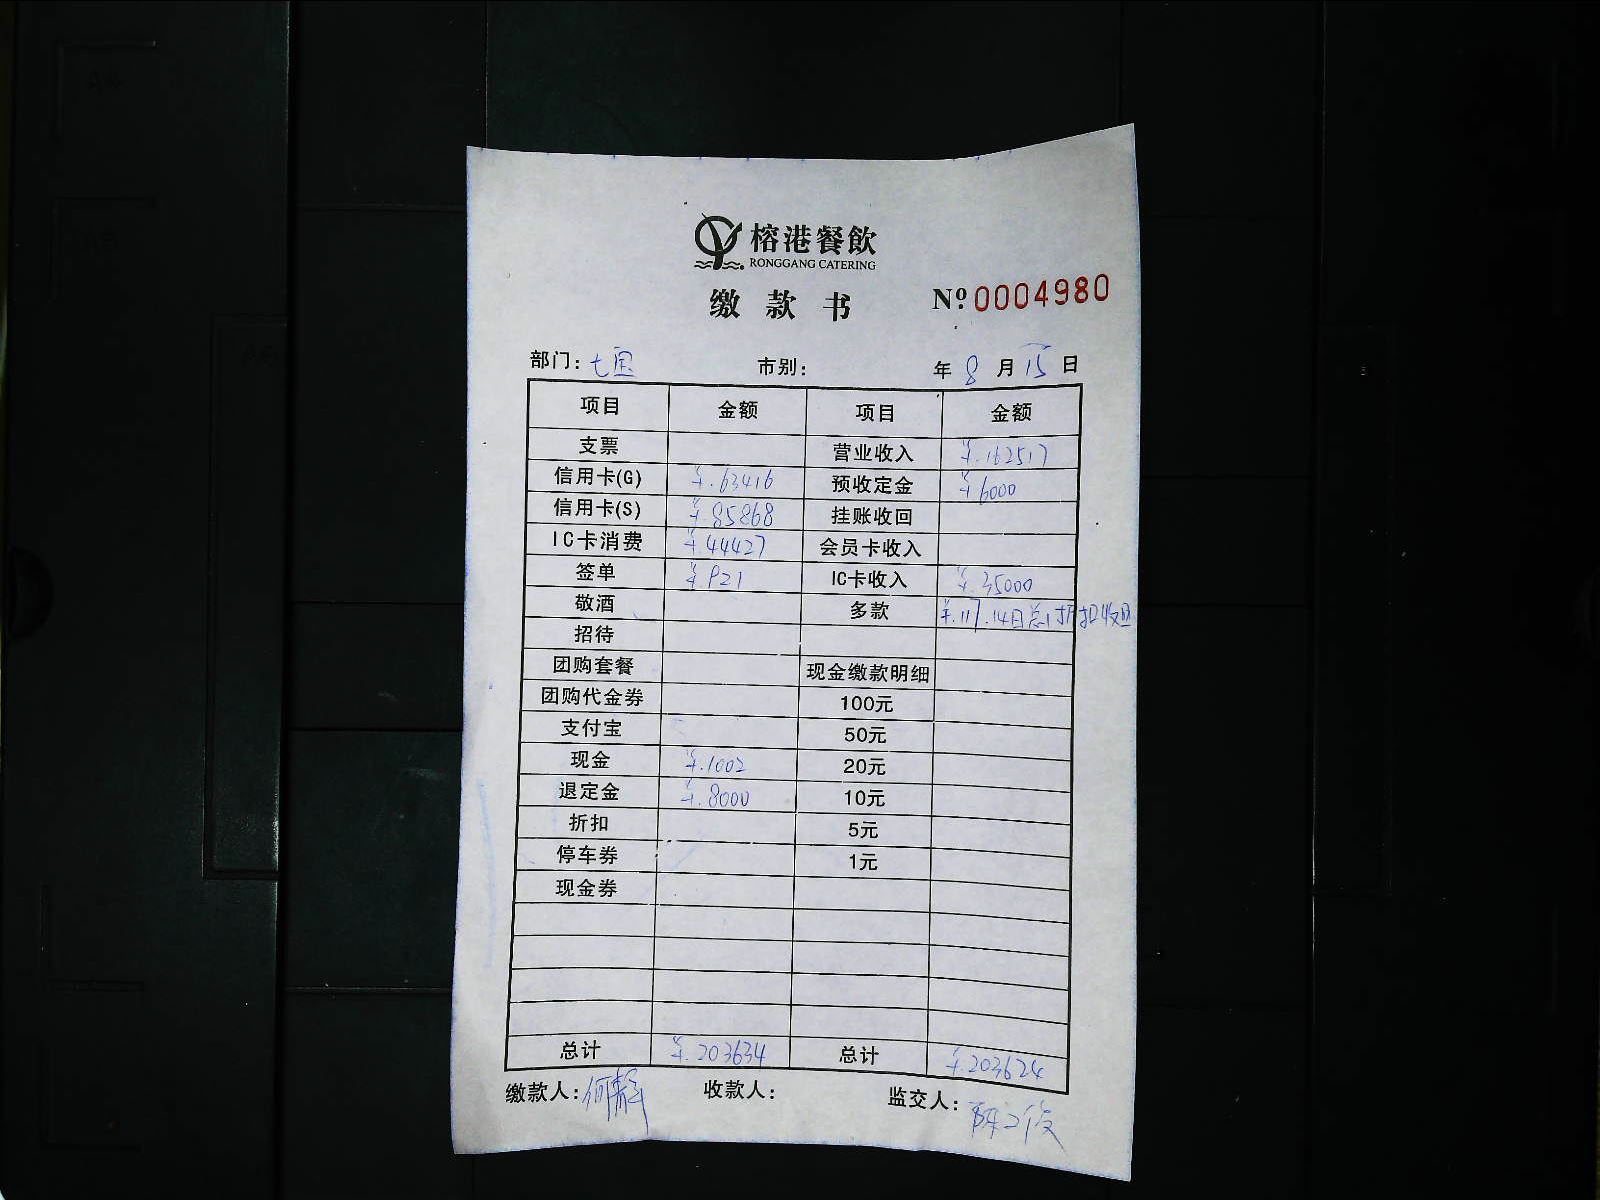 榕港餐飲
RONGGANG CATERING
缴款书 Nº 0004980
部门: 七宝 市别: 年 8 月 15 日
项目 金额 项目 金额
支票 营业收入 ¥.162517
信用卡(G) ¥.63416 预收定金 ¥6000
信用卡(S) ¥.85868 挂账收回
IC卡消费 ¥.44427 会员卡收入
签单 ¥.921 IC卡收入 ¥.35000
敬酒 多款 ¥.117.14日总折扣收回
招待
团购套餐 现金缴款明细
团购代金券 100元
支付宝 50元
现金 ¥.1002 20元
退定金 ¥.8000 10元
折扣 5元
停车券 1元
现金券
总计 ¥.203634 总计 ¥.203624
缴款人: 何静 收款人: 监交人: